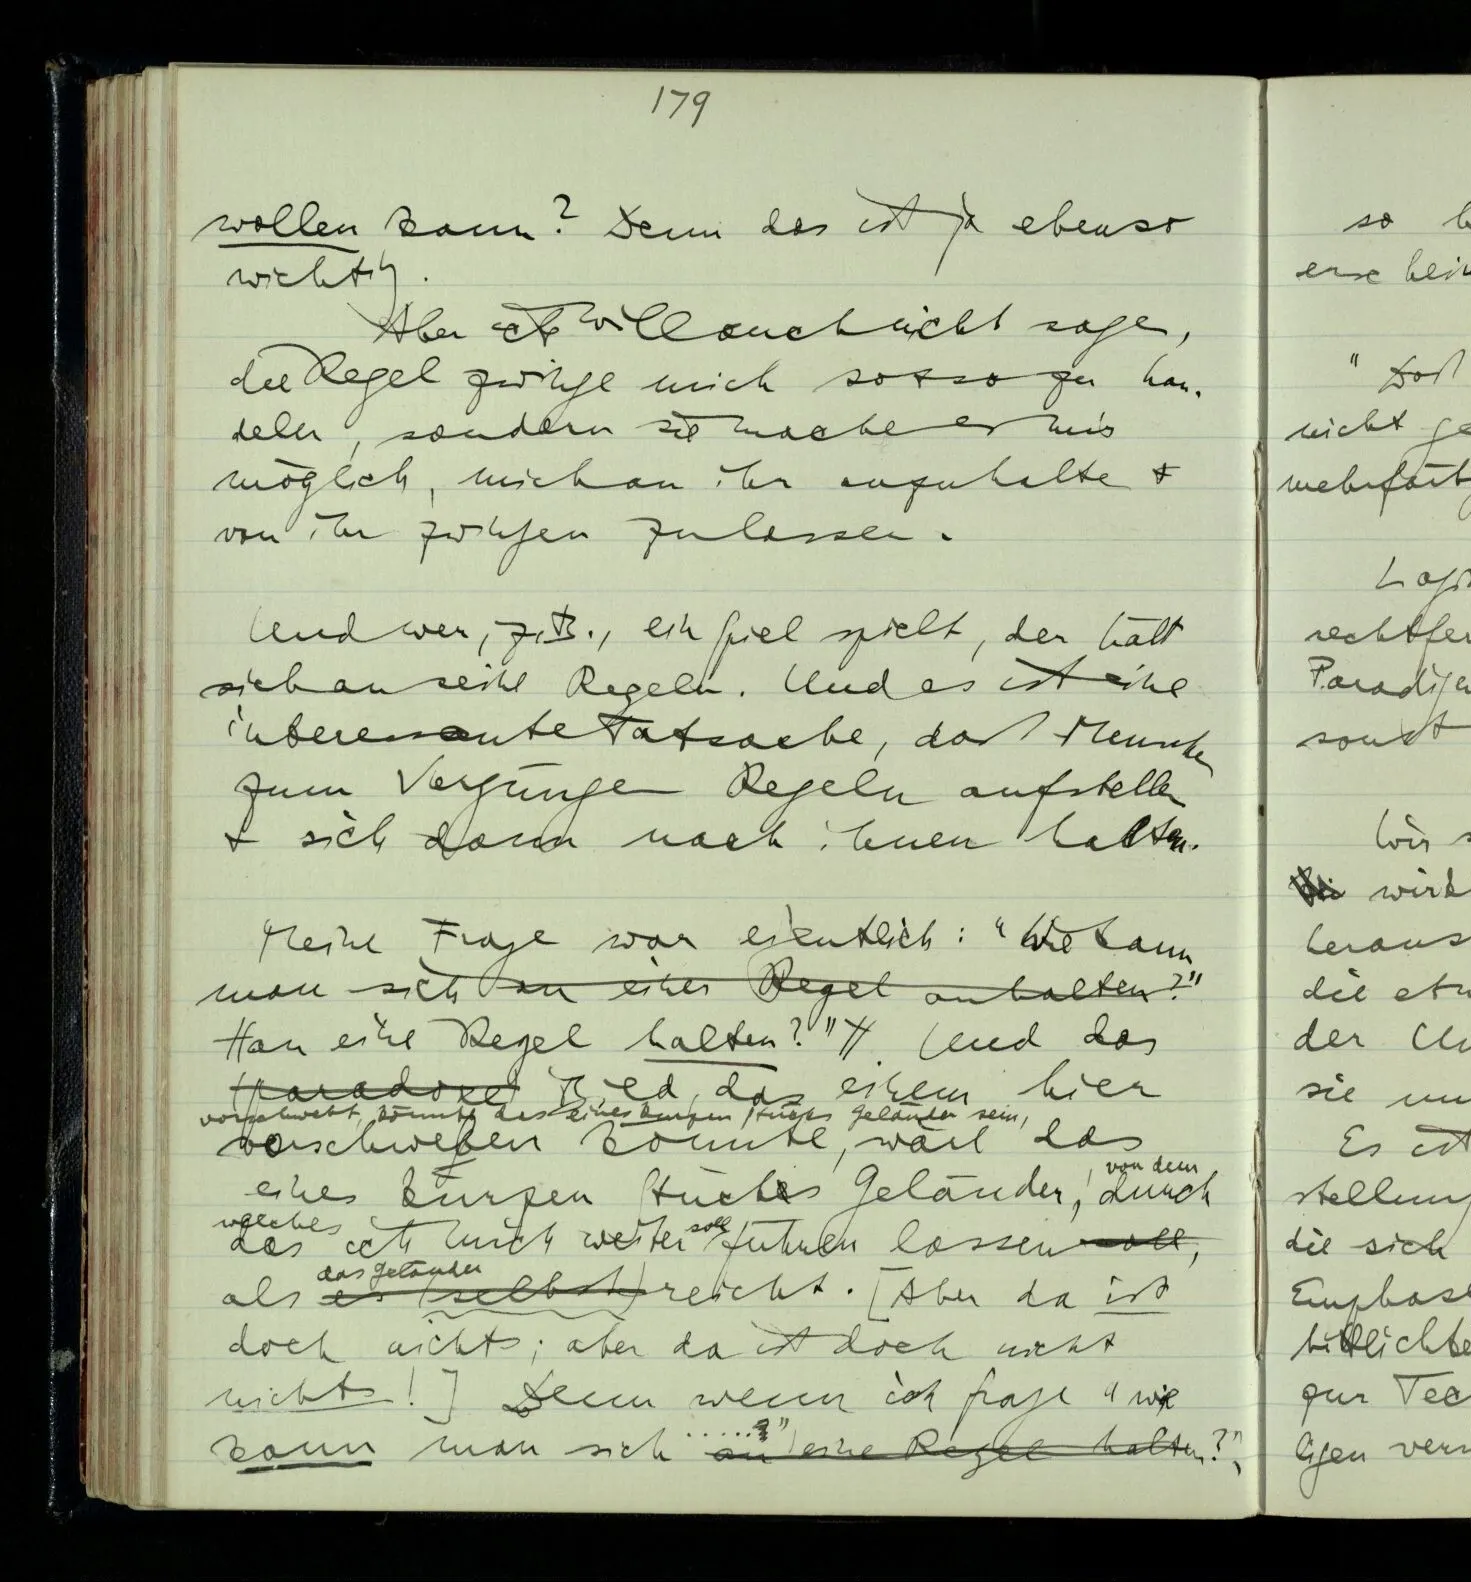 179
wollen kann? Denn das ist ja ebenso
wichtig.
Aber ich will auch nicht sage,
die Regel zwinge mich so zu han-
deln, sondern sie mache es mir
möglich, mich an ihr anzuhalte &
von ihr zwingen zu lassen.
Und wer, z.B., ein Spiel spielt, der hält
sich an seine Regeln. Und es ist eine
interessante Tatsache, daß Menschen
zum Vergnügen Regeln aufstellen
& sich dann nach ihnen halten.
Meine Frage war eigentlich: "Wie kann
man sich an einer Regel anhalten?"
// an eine Regel halten?" // Und das
(paradoxe) Bild, das einem hier
vorschwebt, könnte das eines kurzen Stücks Geländer sein,
vorschweben könnte, wäre das
eines kurzen Stückes Geländer, durch
von dem
welches
das ich mich weiter soll führen lassen soll,
das Geländer
als es (selbst) reicht. [Aber da ist
doch nichts; aber da ist doch nicht
nichts!] Denn wenn ich frage "wie
.....?"
kann man sich an eine Regel halten?",
so
"Daß
nicht
sonst
Wir
wird
heraus
die
der
sie
Es ist
die sich
zur